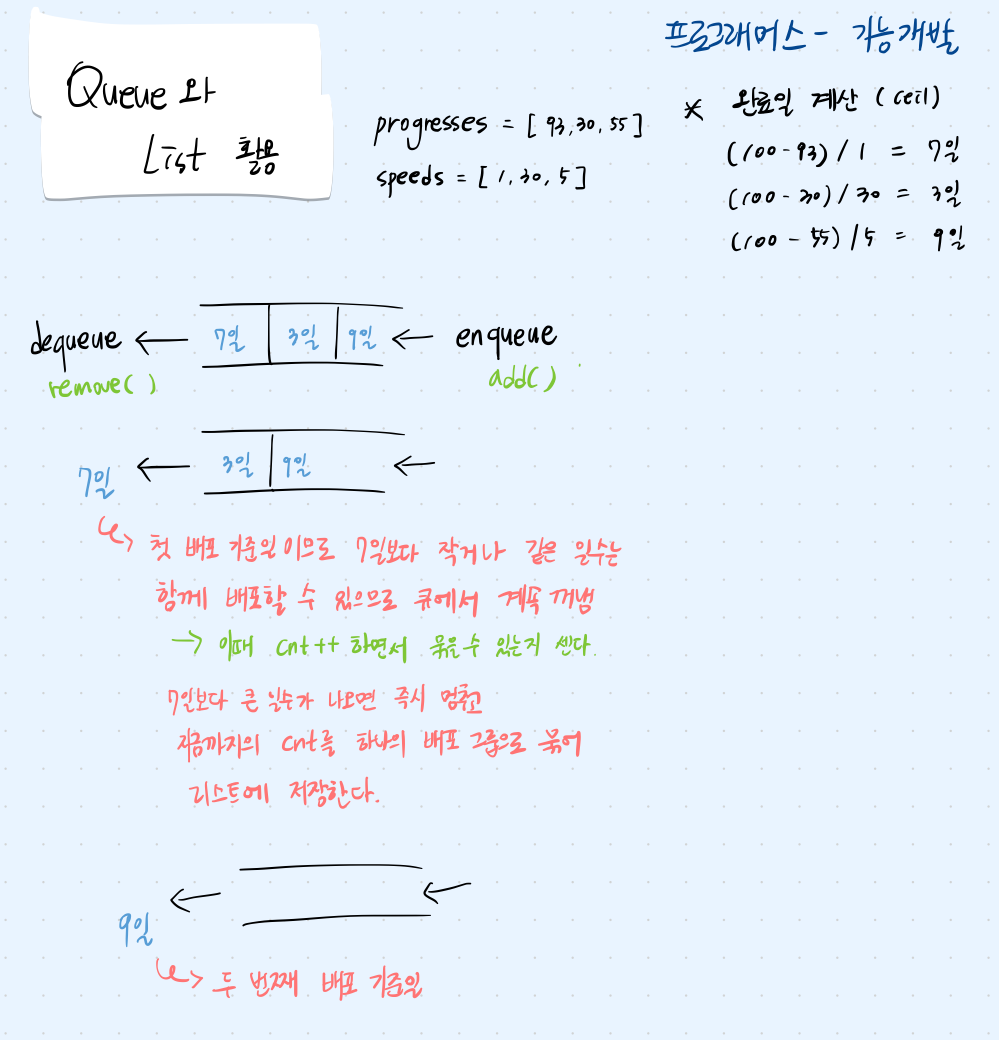 프로그래머스 - 기능개발
Queue와
List 활용
progresses = [ 93, 30, 55 ]
speeds = [ 1, 30, 5 ]
* 완료일 계산 ( ceil )
(100 - 93) / 1 = 7일
(100 - 30) / 30 = 3일
(100 - 55) / 5 = 9일
dequeue ← 7일 3일 9일 ← enqueue
remove( ) add( )
7일 ← 3일 9일 ←
첫 배포 기준일이므로 7일보다 작거나 같은 일수는
함께 배포할 수 있으므로 큐에서 계속 꺼냄
→ 이때 cnt++ 하면서 묶을 수 있는지 센다.
7일보다 큰 일수가 나오면 즉시 멈추고
지금까지의 cnt를 하나의 배포 그룹으로 묶어
리스트에 저장한다.
9일 ← ←
두 번째 배포 기준일